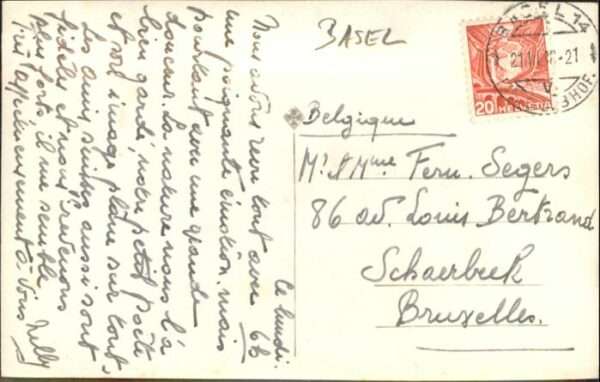 BASEL
BASEL 14
20 HELVETIA
Belgique
Mr & Mme Fern. Segers
86 av. Louis Bertrand
Schaerbeek
Bruxelles.
Ce lundi.
Nous avons revu tout avec
une poignante émotion, mais
pourtant avec une grande
douceur. La nature nous l'a
bien gardé, notre petit poète
et son image plane sur tout.
Les amis suisses aussi sont
fidèles et nous reviendrons
plus forts il me semble
affectueusement à vous Nelly